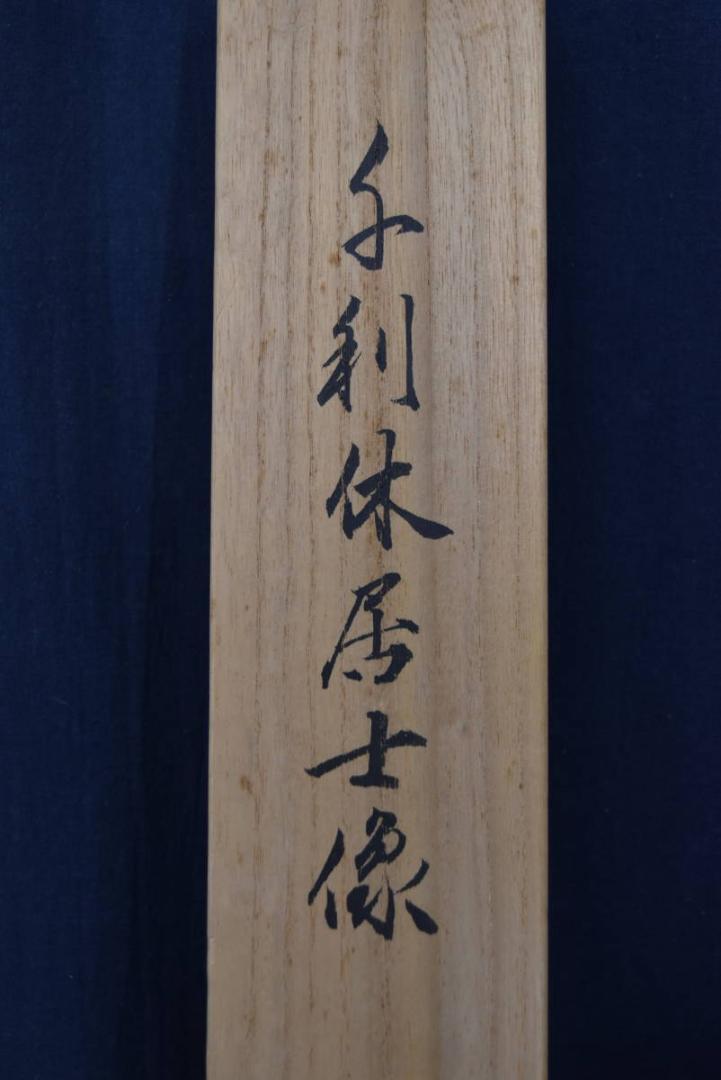 千利休居士像